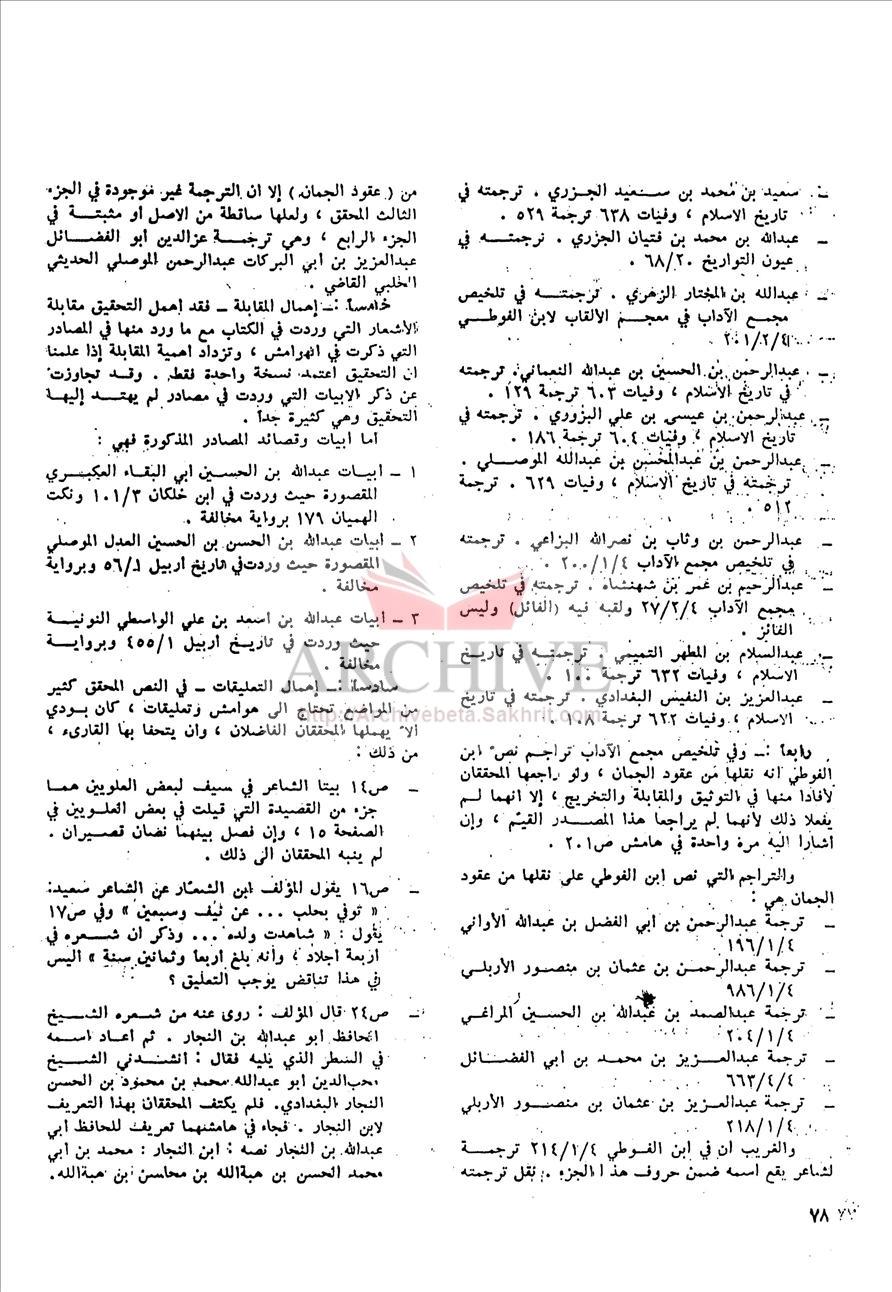 ـ سعيد بن محمد بن سعيد الجزري . ترجمته في
تاريخ الاسلام ، وفيات ٦٣٨ ترجمة ٥٢٩ .
ـ عبدالله بن محمد بن فتيان الجزري . ترجمته في
عيون التواريخ ٦٨/٢٠ .
ـ عبدالله بن المختار الزهري . ترجمته في تلخيص
مجمع الآداب في معجم الألقاب لابن الفوطي
٢٠١/٢/٤
ـ عبدالرحمن بن الحسين بن عبدالله النعماني. ترجمته
في تاريخ الاسلام ، وفيات ٦٠٣ ترجمة ١٢٩ .
ـ عبدالرحمن بن عيسى بن علي البزوري . ترجمته في
تاريخ الاسلام ، وفيات ٦٠٤ ترجمة ١٨٦ .
ـ عبدالرحمن بن عبدالمحسن بن عبدالله الموصلي .
ترجمته في تاريخ الاسلام ، وفيات ٦٢٩ . ترجمة
٥١٢ .
ـ عبدالرحمن بن وثاب بن نصرالله البزاعي . ترجمته
في تلخيص مجمع الآداب ٢٠٠/١/٤ .
ـ عبدالرحيم بن عمر بن شهنشاه . ترجمته في تلخيص
مجمع الآداب ٢٧/٢/٤ ولقبه فيه (الفائل) وليس
الفائز .
ـ عبدالسلام بن المطهر التميمي . ترجمته في تاريخ
الاسلام ، وفيات ٦٣٢ ترجمة ١٠٠ .
ـ عبدالعزيز بن النفيس البغدادي . ترجمته في تاريخ
الاسلام ، وفيات ٦٢٢ ترجمة ١٠٨ .
رابعاً :ـ وفي تلخيص مجمع الآداب تراجم نص ابن
الفوطي أنه نقلها من عقود الجمان ، ولو راجعها المحققان
لأفادا منها في التوثيق والمقابلة والتخريج ، إلا أنهما لم
يفعلا ذلك لأنهما لم يراجعا هذا المصدر القيّم ، وإن
أشارا اليه مرة واحدة في هامش ص٢٠١ .
والتراجم التي نص ابن الفوطي على نقلها من عقود
الجمان هي :
ـ ترجمة عبدالرحمن بن أبي الفضل بن عبدالله الأواني
١٩٦/١/٤
ـ ترجمة عبدالرحمن بن عثمان بن منصور الأربلي
٩٨٦/١/٤
ـ ترجمة عبدالصمد بن عبدالله بن الحسين المراغي
٢٠٤/١/٤
ـ ترجمة عبدالعزيز بن محمد بن أبي الفضائل
٦٦٣/٤/٤
ـ ترجمة عبدالعزيز بن عثمان بن منصور الأربلي
٢١٨/١/٤
والغريب أن في ابن الفوطي ٢١٤/١/٤ ترجمة
لشاعر يقع اسمه ضمن حروف هذا الجزء . نقل ترجمته
من ( عقود الجمان ) إلا ان الترجمة غير موجودة في الجزء
الثالث المحقق ، ولعلها ساقطة من الاصل أو مثبتة في
الجزء الرابع ، وهي ترجمة عزالدين أبو الفضائل
عبدالعزيز بن أبي البركات عبدالرحمن الموصلي الحديثي
الحلبي القاضي .
خامساً :ـ إهمال المقابلة ـ فقد أهمل التحقيق مقابلة
الأشعار التي وردت في الكتاب مع ما ورد منها في المصادر
التي ذكرت في الهوامش ، وتزداد أهمية المقابلة إذا علمنا
أن التحقيق اعتمد نسخة واحدة فقط . وقد تجاوزت
عن ذكر الابيات التي وردت في مصادر لم يهتد إليها
التحقيق وهي كثيرة جداً .
أما أبيات وقصائد المصادر المذكورة فهي :
١ ـ أبيات عبدالله بن الحسين أبي البقاء العكبري
المقصورة حيث وردت في ابن خلكان ١٠١/٣ ونكت
الهميان ١٧٩ برواية مخالفة .
٢ ـ أبيات عبدالله بن الحسن بن الحسين العدل الموصلي
المقصورة حيث وردت في تاريخ أربيل ٥٦/١ وبرواية
مخالفة .
٣ ـ أبيات عبدالله بن اسعد بن علي الواسطي النونية
حيث وردت في تاريخ أربيل ٤٥٥/١ وبرواية
مخالفة .
سادساً :ـ إهمال التعليقات ـ في النص المحقق كثير
من المواضع تحتاج الى هوامش وتعليقات ، كان بودي
ألا يهملها المحققان الفاضلان ، وان يتحفا بها القارىء ،
من ذلك :
ـ ص١٤ بيتا الشاعر في سيف لبعض العلويين هما
جزء من القصيدة التي قيلت في بعض العلويين في
الصفحة ١٥ ، وإن فصل بينهما نصان قصيران .
لم ينبه المحققان الى ذلك .
ـ ص١٦ يقول المؤلف ابن الشعار عن الشاعر سعيد:
« توفي بحلب ... عن نيّف وسبعين » وفي ص١٧
يقول : « شاهدت ولده ... وذكر أن شعره في
أربعة أجلاد ، وأنه بلغ أربعا وثمانين سنة » أليس
في هذا تناقض يوجب التعليق ؟
ـ ص٢٤ قال المؤلف : روى عنه من شعره الشيخ
الحافظ أبو عبدالله بن النجار . ثم أعاد اسمه
في السطر الذي يليه فقال : أنشدني الشيخ
محب‌الدين ابو عبدالله محمد بن محمود بن الحسن
النجار البغدادي. فلم يكتف المحققان بهذا التعريف
لابن النجار . فجاء في هامشهما تعريف للحافظ أبي
عبدالله بن النجار نصه : ابن النجار : محمد بن أبي
محمد الحسن بن هبةالله بن محاسن بن هبةالله.
ARCHIVE
http://Archivebeta.Sakhrit.com
٧٨